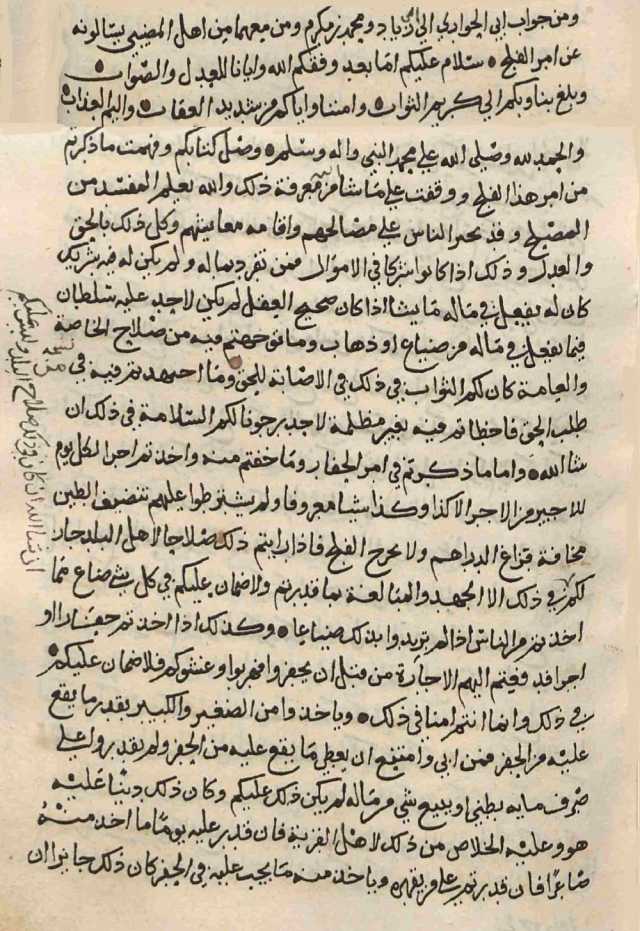 ومن جواب ابي الحواري الى زياد ومحمد بن مكرم ومن معهما من اهل المضيبي يسالونه
عن امر الفلج سلام عليكم اما بعد وفقكم الله وايانا للعدل والصواب
وبلغ بنا وبكم الى كريم الثواب وامننا واياكم من شديد العقاب واليم العذاب
والحمد لله وصلى الله على محمد النبي واله وسلم وصل كتابكم وفهمت ما ذكرتم
من امر هذا الفلج ووقفت على ما شا الله من معرفة ذلك والله يعلم المفسد من
المصلح وقد يجبر الناس على مصالحهم واقامه معايشهم وكل ذلك بالحق
والعدل وذلك اذا كانوا شركا في الاموال فمن تفرد بماله ولم يكن له فيه شريك
كان له يفعل في ماله ما يشا اذا كان صحيح العقل لم يكن لاحد عليه سلطان
فيما يفعل في ماله من ضياع او ذهاب وما توجهتم فيه من صلاح الخاصة
والعامة كان لكم الثواب في ذلك في الاصابة للحق وما اجتهدتم فيه في
طلب الحق فاخطاتم فيه بغير مظلمة لاحد رجونا لكم السلامة في ذلك ان
شا الله واما ما ذكرتم في امر الحفار وما خفتم منه واخذتم اجرا لكل يوم
للاجير من الاجر الا كذا وكذا شيا معروفا ولم يشترطوا عليهم تنضيف الطين
مخافة فراغ الدراهم ولا يخرج الفلج فاذا رايتم ذلك صلاحا لاهل البلد جاز
لكم في ذلك الا الجهد والمبالغة بما قدرتم ولا ضمان عليكم في كل شي ضاع مما
اخذتم من الناس اذا لم تريدوا بذلك ضياعا وكذلك اذا اخذتم حفارا او
اجرا فدفعتم اليهم الاجارة من قبل ان يحفروا فهربوا وغشوكم فلا ضمان عليكم
في ذلك وانما انتم امنا في ذلك وياخذوا من الصغير والكبير بقدر ما يقع
عليه من الحفر فمن ابى وامتنع ان يعطي ما يقع عليه من الحفر ولم يقدروا على
صرف مايه بطني او ببيع شي من ماله لم يكن ذلك عليكم وكان ذلك دينا عليه
هو وعليه الخلاص من ذلك لاهل القرية فان قدر عليه يوما ما اخذ منه
صاغرا فان قدرتم على من يقهره وياخذ منه ما يجب عليه في الحفر كان ذلك جايزا ان
ان شا الله ان كان في ذلك صلاح البلد وليس عليكم